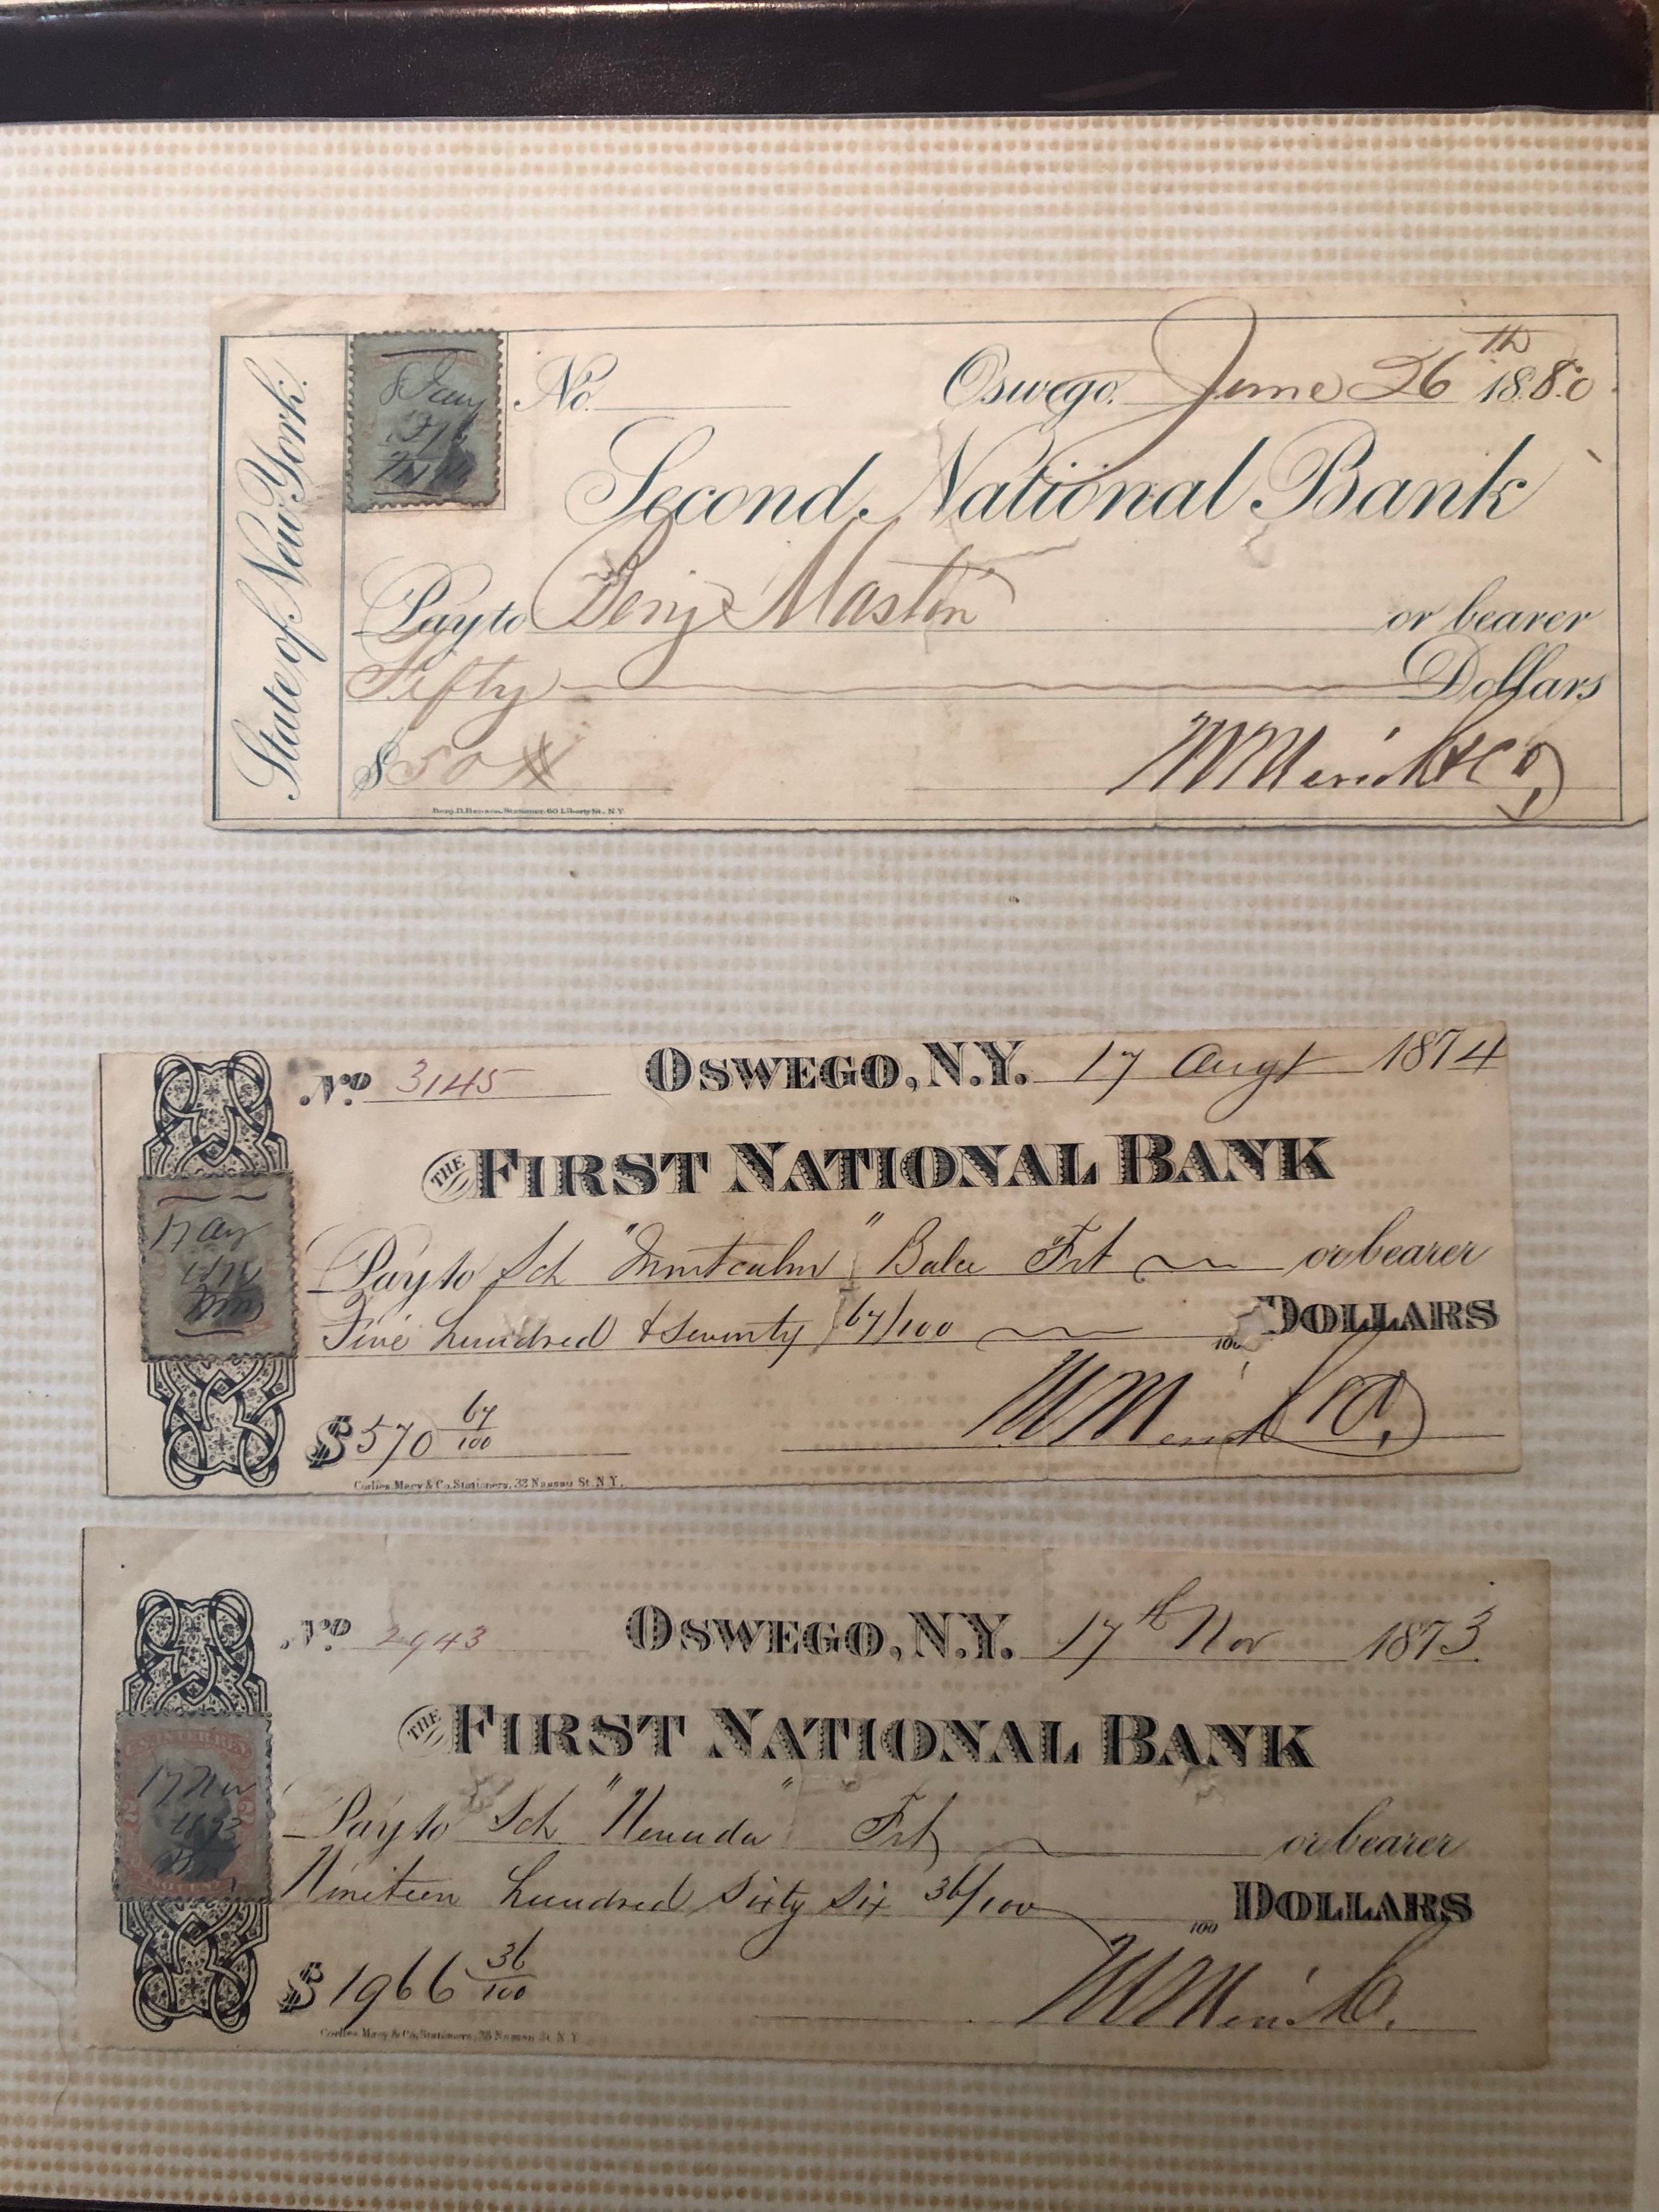 State of New York.
8 Jany
No. Oswego. June 26th 1880.
Second National Bank
Pay to Benj Mastin or bearer
Fifty Dollars
$50
60 Liberty St. N.Y.
No 3145 OSWEGO, N.Y. 17 Augt 1874
THE FIRST NATIONAL BANK
17 Aug
Pay to Sch "Montcalm" Balce Frt or bearer
Five hundred & seventy 67/100 100 DOLLARS
$570 67/100
Corlies, Macy & Co. Stationers, 33 Nassau St. N.Y.
No 2943 OSWEGO, N.Y. 17th Nov 1873.
THE FIRST NATIONAL BANK
U.S. INTER. REV.
17 Nov
1873
Pay to Sch "Nevada" Frt or bearer
Nineteen hundred Sixty Six 36/100 100 DOLLARS
$1966 36/100
Corlies, Macy & Co. Stationers, Nassau St. N.Y.